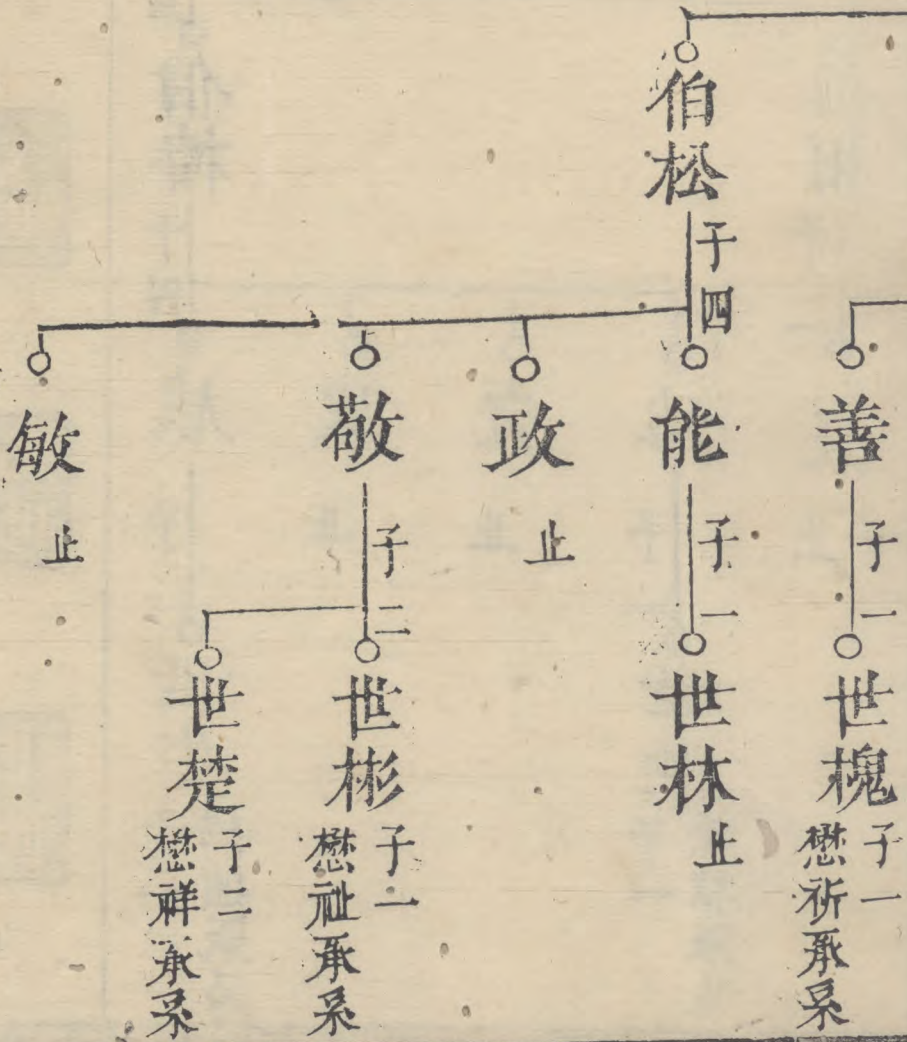 伯松
子四
善
子一
世槐
子一
懋祈承系
能
子一
世林
止
政
止
敬
子二
世彬
子一
懋祉承系
世楚
子二
懋祥承系
敏
止